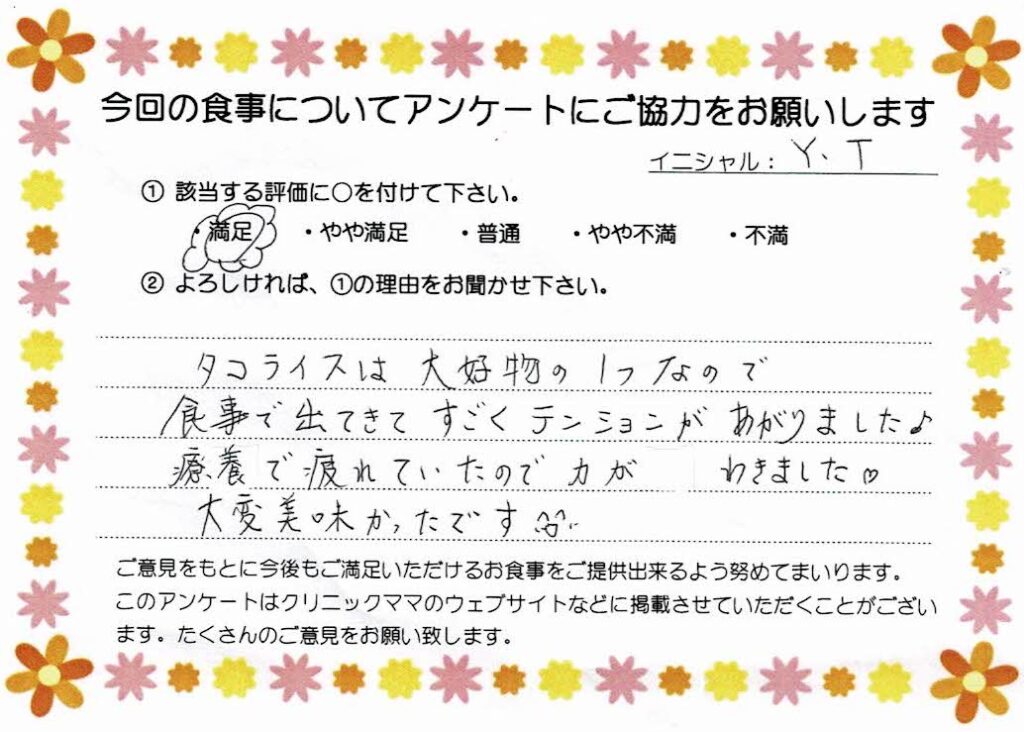 今回の食事についてアンケートにご協力をお願いします
イニシャル: Y.T
① 該当する評価に○を付けて下さい。
・満足 ・やや満足 ・普通 ・やや不満 ・不満
② よろしければ、①の理由をお聞かせ下さい。
タコライスは大好物の1つなので
食事で出てきてすごくテンションがあがりました♪
療養で疲れていたので力が わきました♡
大変美味かったです
ご意見をもとに今後もご満足いただけるお食事をご提供出来るよう努めてまいります。
このアンケートはクリニックママのウェブサイトなどに掲載させていただくことがござい
ます。たくさんのご意見をお願い致します。